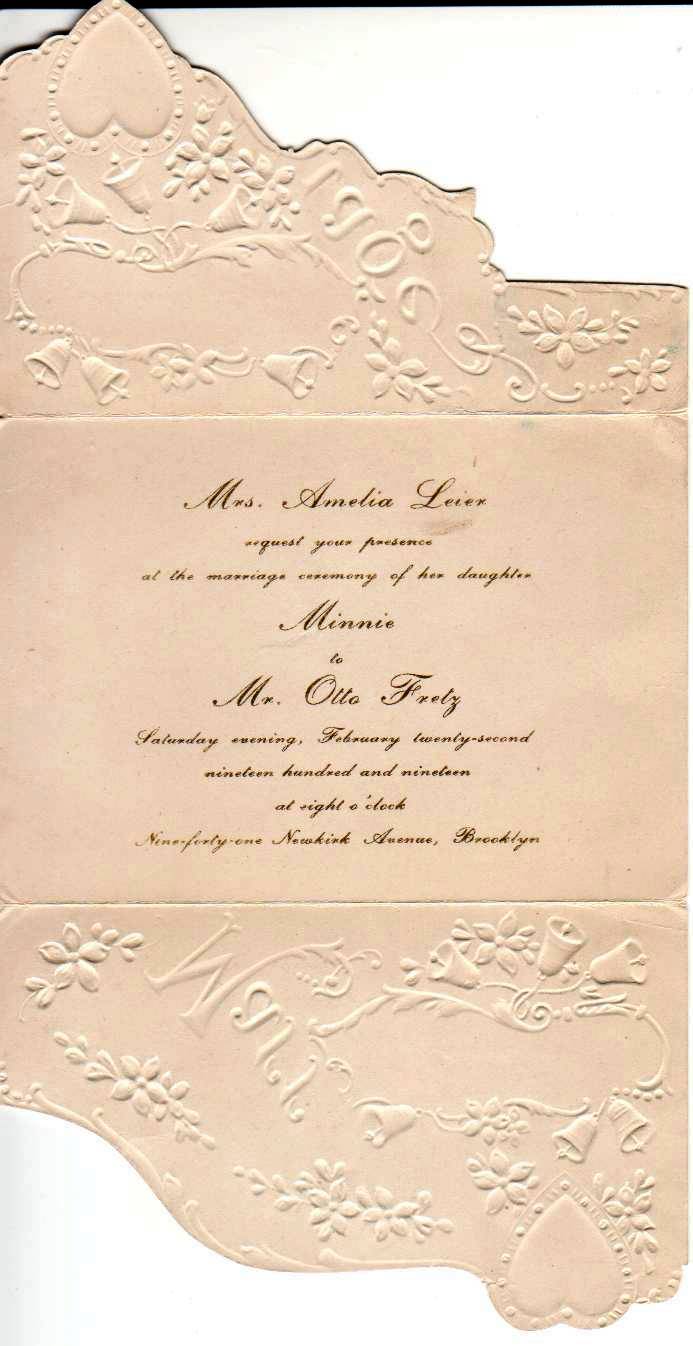 iage
Mrs. Amelia Leier
request your presence
at the marriage ceremony of her daughter
Minnie
to
Mr. Otto Fretz
Saturday evening, February twenty-second
nineteen hundred and nineteen
at eight o'clock
Nine-forty-one Newkirk Avenue, Brooklyn
Marr